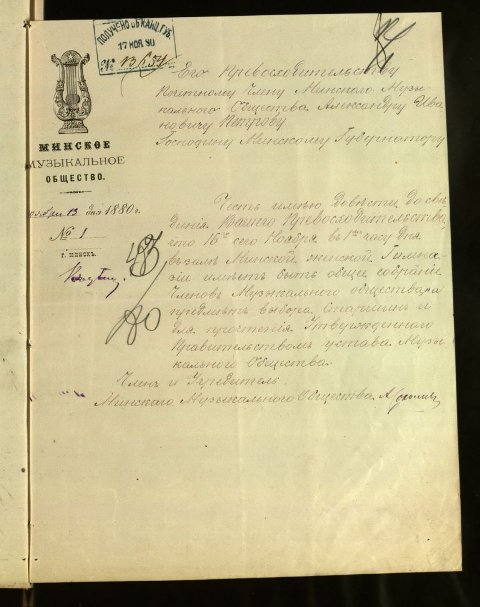 ПОЛУЧЕНО В КАНЦ. ГУБ.
17 НОЯ 80
№
Его Превосходительству
Почетному Члену Минскаго Музы-
кальнаго Общества Александру Ива-
новичу Петрову
Господину Минскому Губернатору
МИНСКОЕ
МУЗЫКАЛЬНОЕ
ОБЩЕСТВО.
Ноября 13 дня 1880 г.
№ 1
Г. МИНСКЪ.
Честь имѣю довѣсти до свѣ-
дѣнія Вашего Превосходительства,
что 16го сего Ноября въ 1мъ часу дня
въ залѣ Минской женской Гимна-
зіи имѣетъ быть общее собраніе
Членовъ Музыкальнаго общества на
предметъ выбора Старшинъ и
для прочтенія Утвержденнаго
Правительствомъ устава Музы-
кальнаго Общества.
Членъ и Учредитель
Минскаго Музыкальнаго Общества